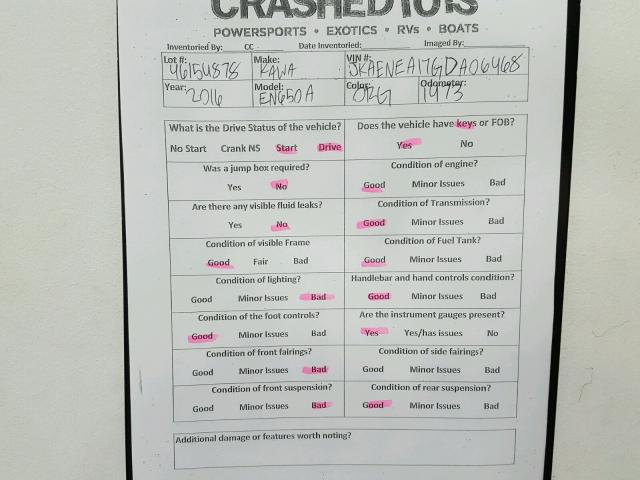 CRASHEDTOYS
POWERSPORTS • EXOTICS • RVs • BOATS
Inventoried By: CC Date Inventoried: Imaged By:
Lot #: 46154878 Make: KAWA VIN #: JKAENEA17GDA06468
Year: 2016 Model: EN650A Color: ORG Odometer: 1973
What is the Drive Status of the vehicle? Does the vehicle have keys or FOB?
No Start Crank NS Start Drive Yes No
Was a jump box required? Condition of engine?
Yes No Good Minor Issues Bad
Are there any visible fluid leaks? Condition of Transmission?
Yes No Good Minor Issues Bad
Condition of visible Frame Condition of Fuel Tank?
Good Fair Bad Good Minor Issues Bad
Condition of lighting? Handlebar and hand controls condition?
Good Minor Issues Bad Good Minor Issues Bad
Condition of the foot controls? Are the instrument gauges present?
Good Minor Issues Bad Yes Yes/has issues No
Condition of front fairings? Condition of side fairings?
Good Minor Issues Bad Good Minor Issues Bad
Condition of front suspension? Condition of rear suspension?
Good Minor Issues Bad Good Minor Issues Bad
Additional damage or features worth noting?